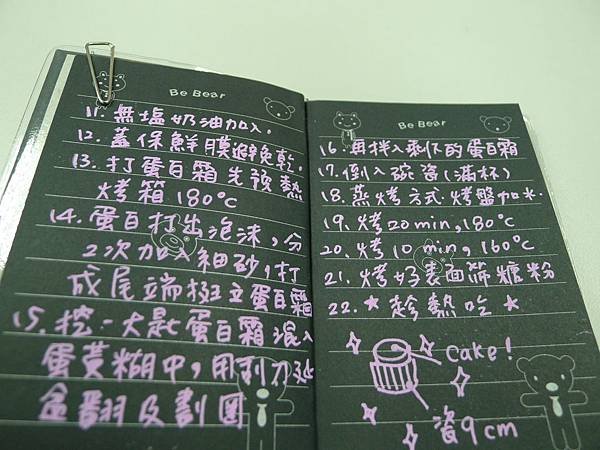 Be Bear
11. 無塩奶油加入.
12. 蓋保鮮膜避免乾.
13. 打蛋白霜先預熱
烤箱 180°C
14. 蛋白打出泡沫,分
2次加入細砂,打
成尾端挺立蛋白霜
15. 挖一大匙蛋白霜混入
蛋黃糊中,用刮刀延
盒翻及劃圈
Be Bear
16. 再拌入剩下的蛋白霜
17. 倒入碗資(滿杯)
18. 蒸烤方式.烤盤加水.
19. 烤20min,180°C
20. 烤10min,160°C
21. 烤好表面篩糖粉
22. ★趁熱吃★
cake!
瓷9cm